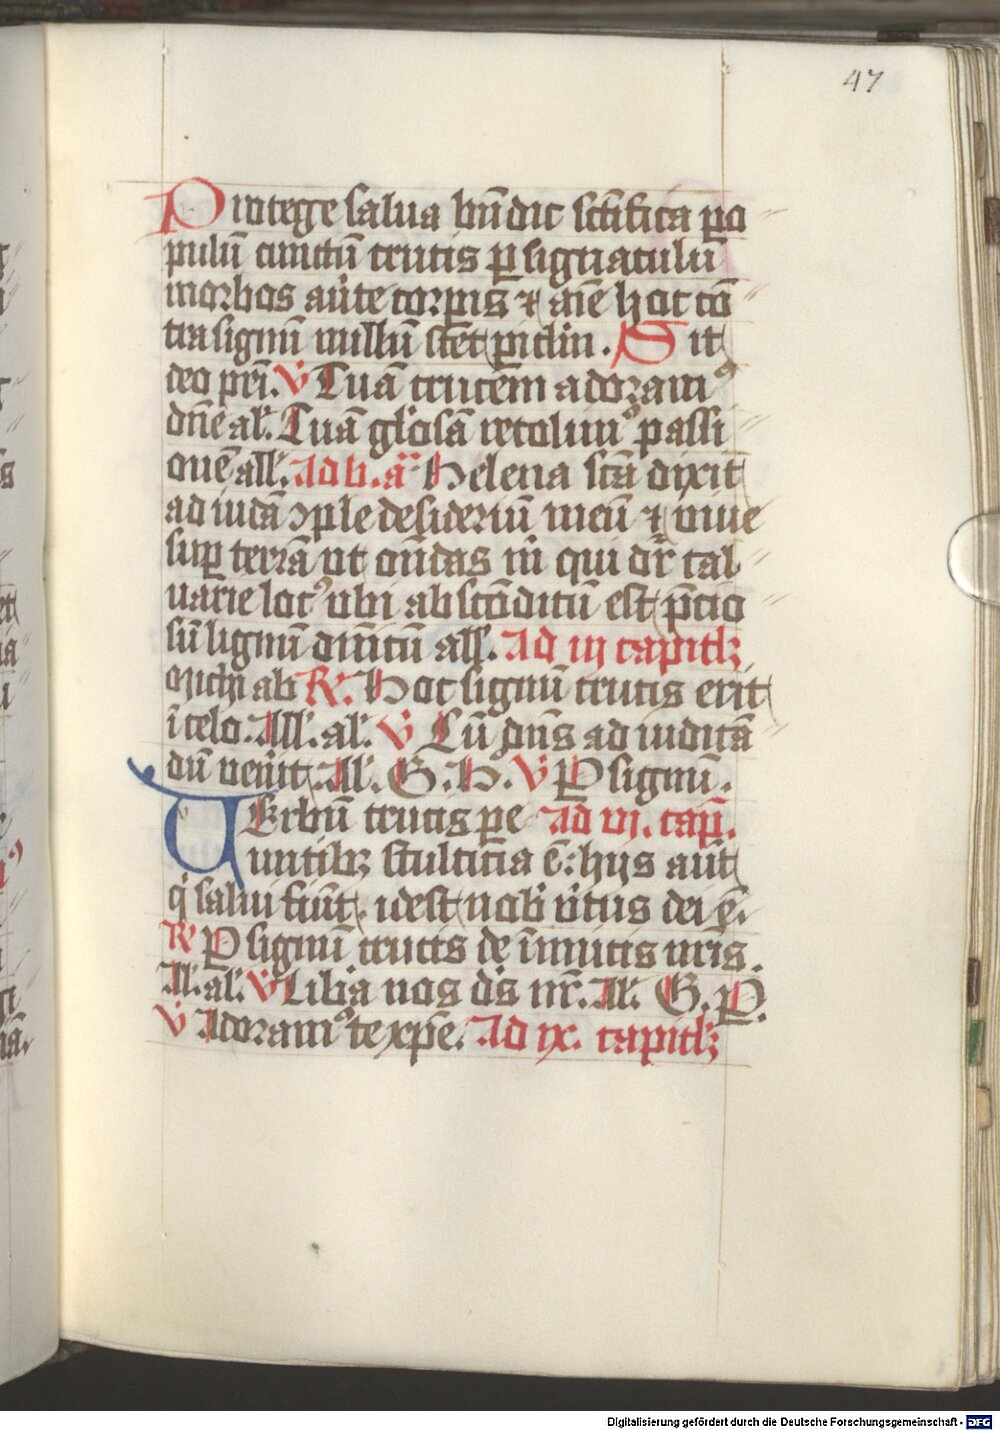 47
Protege salua bn̄dic sctīfica ꝑo
pulū cunctū crucis ꝑ signaculū
morbos aūte corpis ⁊ aīe hoc cō
tra signū nullū stet piclm̄. Sit
deo pr̄i. V̇ Tuā crucem adoramꝰ
dn̄e al̄. Tuā gl̓osā recolimꝰ passi
onē all̄. Ad bn̄. a᷑ Helena scā dixit
ad iudā ɔple desideriū meū ⁊ viue
suꝑ terrā ut on̄das m̄ qui dr̄ cal
uarie locꝰ ubi absconditū est p̄cio
sū lignū dn̄icū all̄. Ad iij capitlꝫ
R̄. Hoc signū crucis erit
ī celo. All̄. al̄. V̇ Cū dn̄s ad iudicā
dū uenit. Al̄. G. H. V̇ P signū.
Uerbū crucis pe Ad vj. cap̄.
untibꝫ stulticia ē: hijs aūt
q̇ salui fiūt. idest nob̄ v̓tus dei ē.
R̄ P signū crucis de inimicis nr̄is.
Al̄. al̄. V̇ Libia nos ds̄ nr̄. Al̄. G. P.
V̇ Adoramꝰ te xp̄e. Ad ix. capitlꝫ
Digitalisierung gefördert durch die Deutsche Forschungsgemeinschaft - DFG